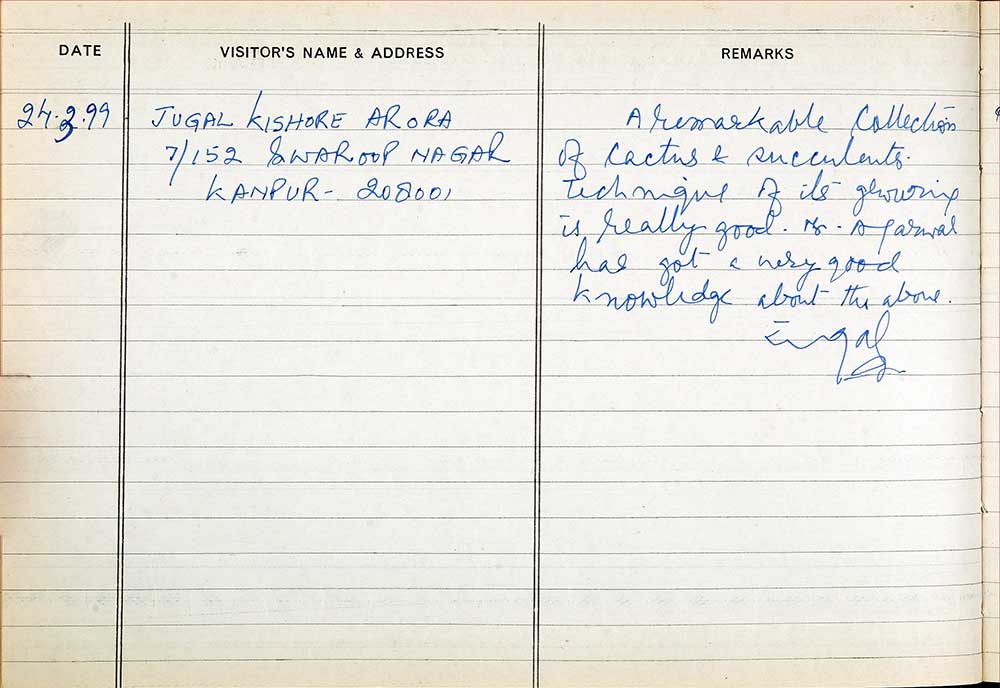 DATE
VISITOR'S NAME & ADDRESS
REMARKS
24.3.99
JUGAL KISHORE ARORA
7/152 SWAROOP NAGAR
KANPUR - 208001
A remarkable Collection
of Cactus & succulents.
Technique of its growing
is really good. Mr. Agarwal
has got a very good
knowledge about the above.
Jugal